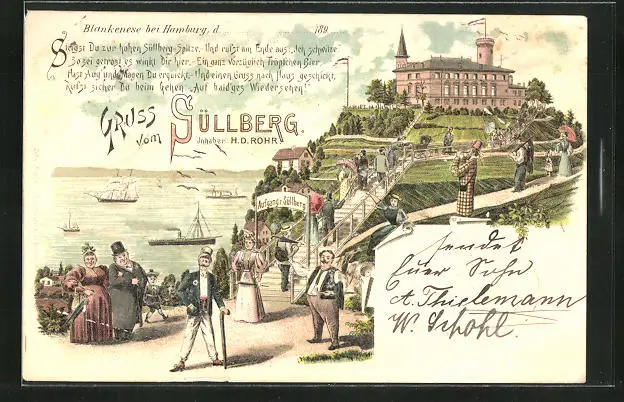 Blankenese bei Hamburg, d. 189
Steigst Du zur hohen Süllberg-Spitze, Und rufst am Ende aus: „Ich schwitze“
So sei getrost es winkt Dir hier, Ein ganz vorzüglich Tröpfchen Bier
Hast Aug' und Magen Du erquickt, Und einen Gruss nach Haus geschickt,
Rufst sicher Du beim Gehen „Auf bald'ges Wiedersehen!“
GRUSS
vom SÜLLBERG.
Inhaber: H. D. ROHR
Aufgang z. Süllberg
sendet
Euer Sohn
A. Thielemann
W. Schohl.